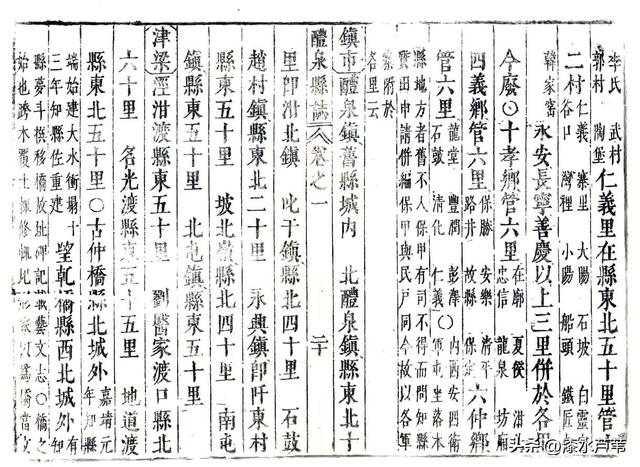 李氏 武村
郭村 陶堡 仁義里在縣東北五十里管十
二村 仁義 寨里 大陽 石坡 白靈
谷口 灣裡 小陽 船頭 鐵匠
韓家窰 永安長寧善慶以上三里併於各里
今廢〇十孝鄉管六里 在廓 夏侯 泔北
忠信 龍泉 坊廂
四義鄉管六里 保勝 安樂 清平 六仲鄉
路井 故縣 保定
管六里 龍堂 豐潤 彭澤
石鼓 清化 仁義〇 內西安四衛
軍屯坐落本
縣地方者舊不入保甲有司不得而問知縣
申請併編保甲與民戶同今故以各
附於
各里云
鎮市 醴泉鎮舊縣城內 北醴泉鎮縣東北十
醴泉縣誌 卷之一 二十
里卽泔北鎮 叱干鎮縣北四十里 石鼓
趙村鎮縣東北二十里 永興鎮卽阡東村
縣東五十里 坡北鎮縣北四十里 南屯
鎮縣東五十里 北屯鎮縣東五十里
津梁 涇泔渡縣東五十里 劉醫家渡口縣北
六十里 名光渡縣東五十五里 地道渡
縣東北五十里〇古仲橋縣北城外 嘉靖元
年知縣
端始建大水衝塌十
三年知縣佐重建 望乾橋縣西北城外 有知
縣夢斗撰移橋故址碑記載藝文志〇橋之
始也
头条@漆水芦苇